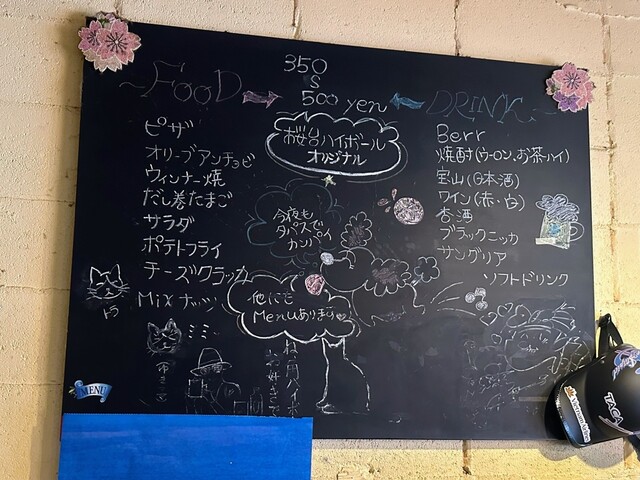 350
S
500 yen
~FOOD
DRINK~
ピザ
オリーブアンチョビ
ウィンナー焼
だし巻たまご
サラダ
ポテトフライ
チーズクラッカ
Mixナッツ
トラ
桜台ハイボール
オリジナル
今夜も
タパスで
カンパイ
他にも
Menuあります
Berr
焼酎(ウーロン、お茶ハイ)
宝山(日本酒)
ワイン(赤・白)
杏酒
ブラックニッカ
サングリア
ソフトドリンク
MENU
TACA
Vietnam Airlines